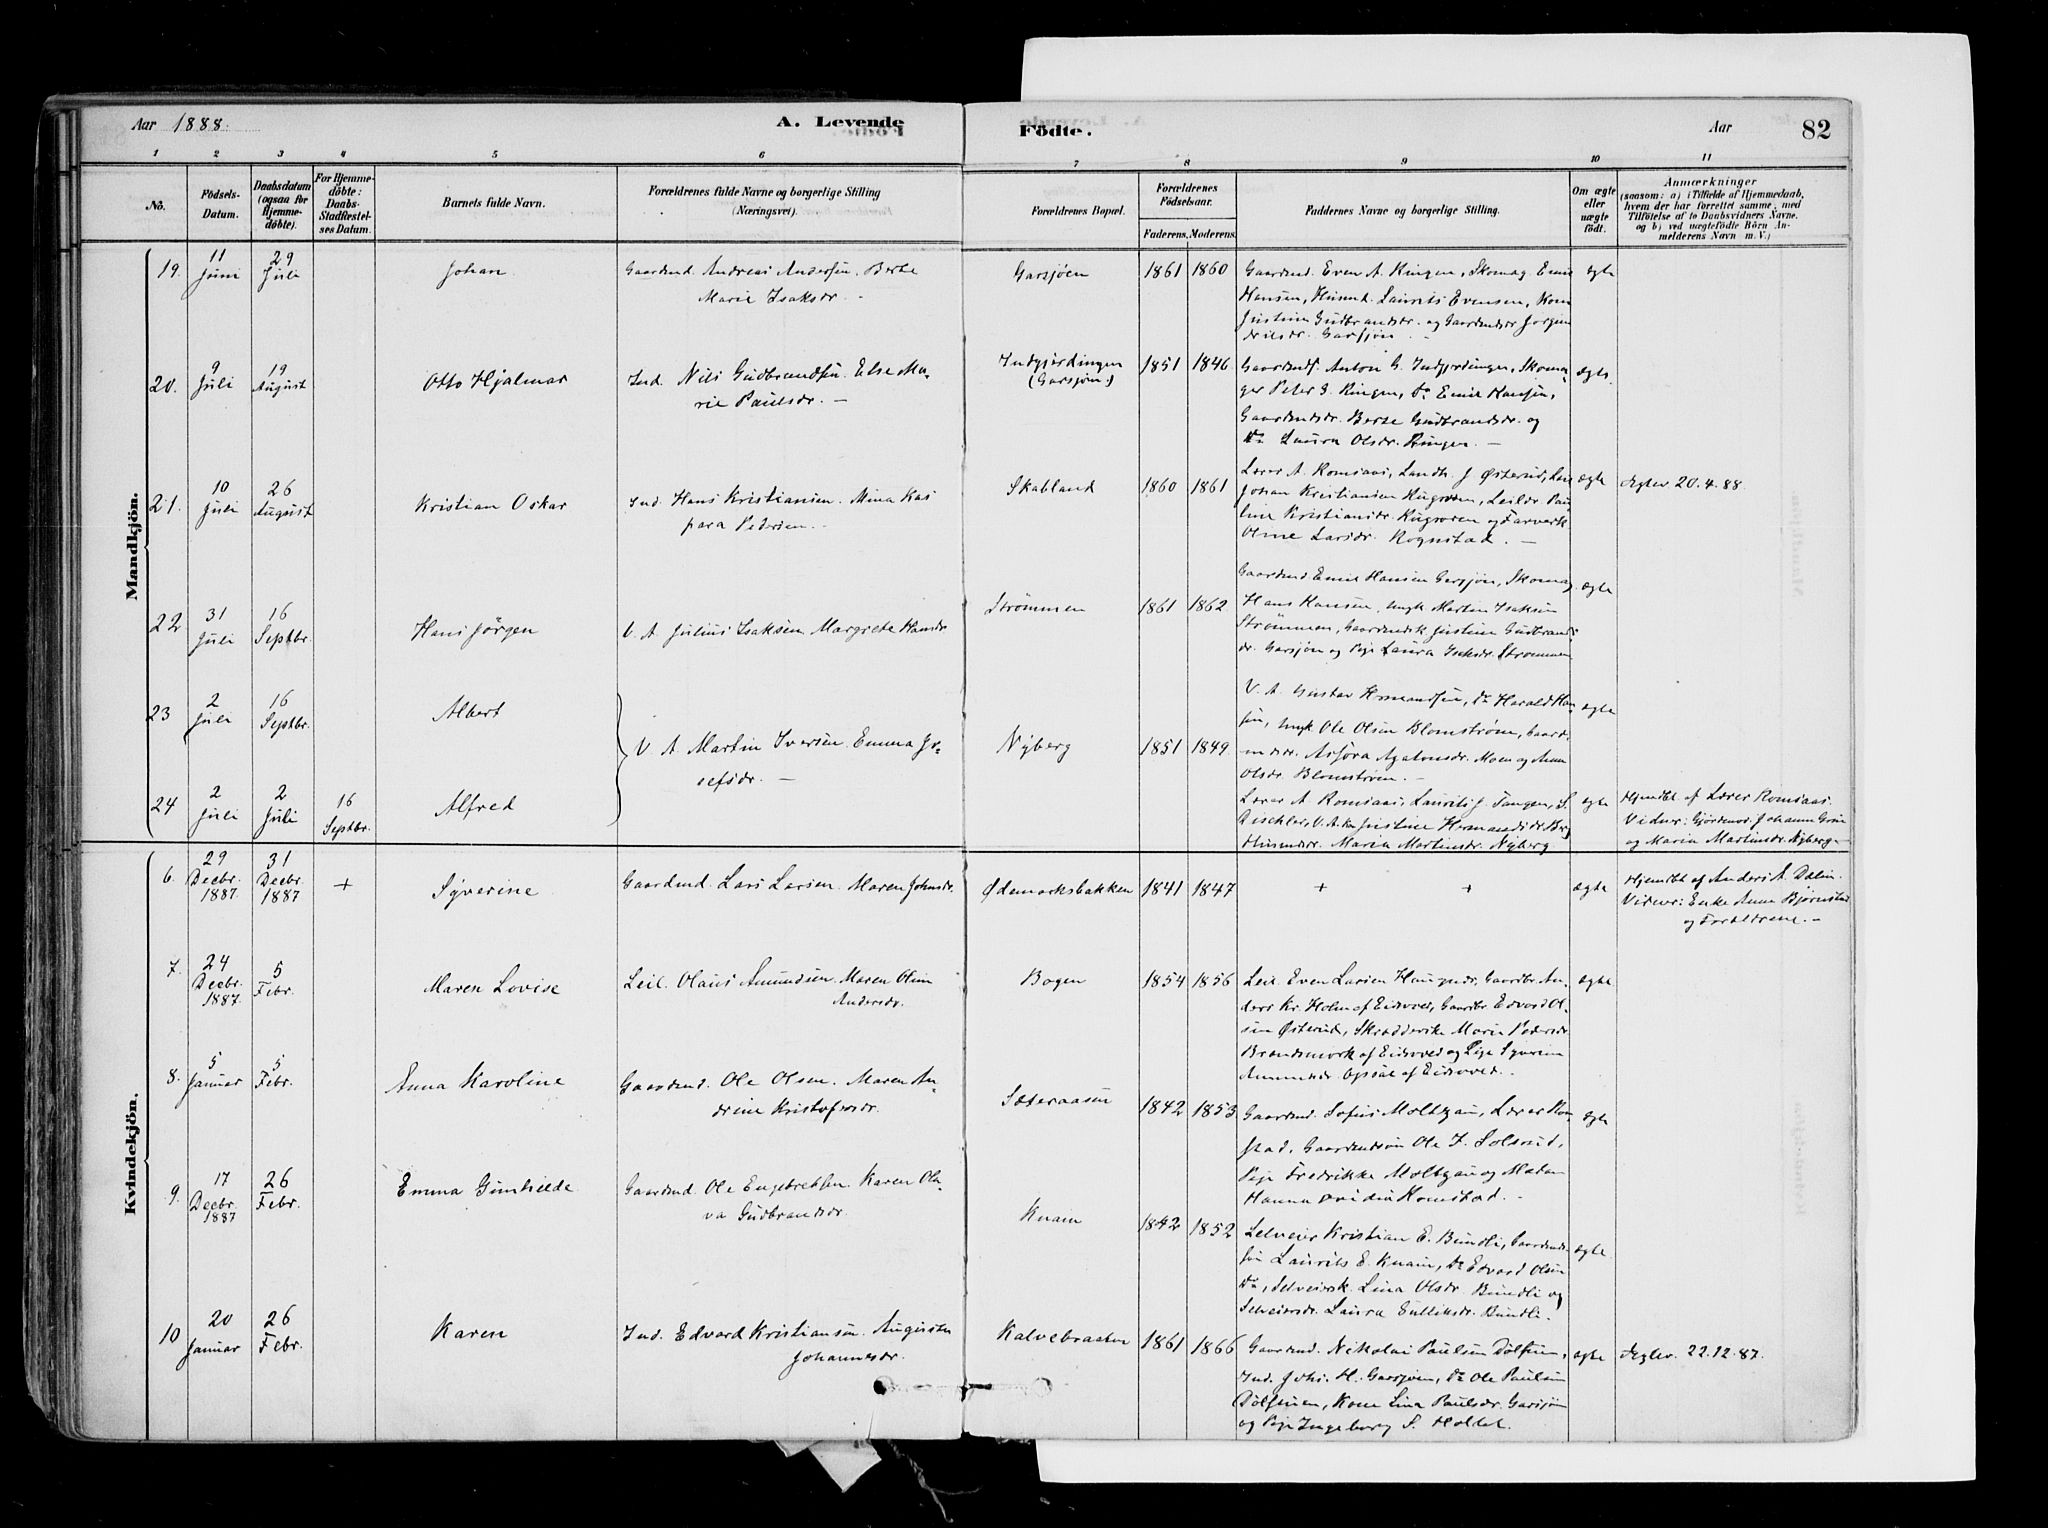 Aar 1888.
A. Levende
Födte.
Aar
82
1 2 3 4 5 6 7 8 9 10 11
No.
Födsels-
Datum.
Daabsdatum
(ogsaa for
Hjemme-
döbte).
For Hjemme-
döbte:
Daabs-
Stadfæstel-
ses Datum.
Barnets fulde Navn.
Forældrenes fulde Navne og borgerlige Stilling
(Næringsvei).
Forældrenes Bopæl.
Forældrenes
Födselsaar.
Faderens. Moderens.
Faddernes Navne og borgerlige Stilling.
Om ægte
eller
uægte
født.
Anmærkninger
(saasom: a) i Tilfælde af Hjemmedaab,
hvem der har forrettet samme, med
Tilföielse af to Daabsvidners Navne.
og b) ved uægtefödte Börn An-
melderens Navn m. V.)
Mandkjön.
19. 11 Juni 29 Juli Johan Gaardmd Andreas Andersen. Berte
Marie Isaksdr. –
Garsjøen 1861 1860
Gaardmd. Even A. Ringen, Skomag. Emil
Hansen, Husmd. Laurits Evensen, Kone
Justine Gudbrandsdr. og Gaardmdsdr Jørgine
Garsjøn
ægte
20. 9 Juli 19 August Otto Hjalmar Ind. Nils Gudbrandsen. Else Ma-
rie Paulsdr. –
Indgjerdingen
(Garsjøen)
1851 1846
Gaardmdss. Anton G. Indgjerdingen, Skoma-
ger Peter G. Ringen, do Emil Hansen,
Gaardmdsdr. Berte Gudbrandsdr. og
do Laura Olsdr. Ringen. –
ægte.
21. 10 Juli 26 August Kristian Oskar Ind. Hans Kristiansen. Mina Kas
para Pedersen. –
Skabland 1860 1861
Lærer A. Romsaas, Landh. J Østerud,
Johan Kristiansen Leildr. Pau
line Kristiansdr. og Farversk
Oline Larsdr. Rognstad. –
ægte
Ægtev. 20.4.88.
22 31 Juli 16 Septbr. Hans Jørgen V. A. Julius Isaksen. Margrete Hansdr
Strømmen 1861 1862
Gaardmd Emil Hansen Garsjøn, Skomag.
Hans Hansen, Ungk Martin Isaksen
Strømmen, Gaardmdsk Justine Gudbrands
dr. Garsjøn og Pige Laura Isaksdr. Strømmen
ægte
23 2 Juli 16 Septbr. Albert
V. A. Martin Iversen. Emma Jo-
sefsdr. –
Nyberg 1851 1849.
V. A. Gustav do Harald Han-
sen, Ungk Ole Olsen Blomstrøm, Gaard-
mdsdr. Agatonsdr. Moen og Anne
Olsdr. Blomstrøm. –
ægte
24 2 Juli 2 Juli 16 Septbr. Alfred
Lærer A. Romsaas, Laurits J. Tangen, S.
V. A. Justine
Husmdsdr. Maria Martinsdr. Nyberg
ægte
Hjemdbt af Lærer Romsaas.
Vidner: Gjordemor Johanne
og Maria Martinsdr. Nyberg –
Kvindekjön.
6. 29 Decbr. 1887. 31 Decbr. 1887 + Syverine Gaardmd. Lars Larsen. Maren Johnsdr.
Ødemarksbakken 1841 1847 + + ægte
Hjemdbt af Anders A. Dalen.
Vidner: Enke Anne Bjørnstad
og Forældrene. –
7. 24 Decbr. 1887. 5 Febr. Maren Lovise Leil. Olaus Amundsen. Maren Oline
Andersdr.
Bogen 1854 1856
Leil. Even Larsen Gaardbr. An-
ders Kr. Holm af Eidsvold, Gaardbr. Edvard Ol-
sen Østerud, Marie Pedersdr.
Brandsmork af Eidsvold og Pige Syverine
Amundsdr. Opsal af Eidsvold. –
ægte
8. 5 Januar 5 Febr. Anna Karoline Gaardmd. Ole Olsen. Maren An-
drine Kristofersdr.
Sæteraasen 1842 1853
Gaardmd. Sofus Moltzau, Lærer Kom-
stad, Gaardmdsøn Ole F. Solsrud,
Pige Fredrikke Moltzau og Madam
Hanna Komstad. –
ægte
9. 17 Decbr. 1887 26 Febr. Emma Gunhilde Gaardmd Ole Engebretsen. Karen Ola-
va Gudbrandsdr.
Knain 1842 1852
Selveier Kristian E. Bundli, Gaardmds-
søn Laurits E. Knain, do Edvard Olsen
do, Selveiersk. Lina Olsdr. Bundli og
Selveiersdr. Laura Bundli.
ægte
10 20 Januar 26 Febr. Karen Ind. Edvard Kristiansen. Auguste
Johannesdr.
Kalvebraaten 1861 1866
Gaardmd. Nikolai Paulsen Dølsveen,
Ind. Johs. H. Garsjøen, do Ole Paulsen
Dølsveen, Kone Lina Paulsdr. Garsjøn
og Pige Ingeborg S. Holtet.
ægte
Ægtev. 22.12.87.